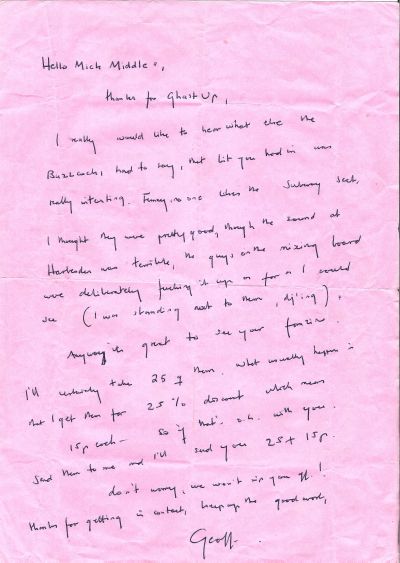 Hello Mick Middles,
thanks for Ghast Up,
I really would like to hear what else the
Buzzcocks, had to say, that bit you had in was
really interesting. Funny, no one likes the Subway Sect,
I thought they were pretty good, though the sound at
was terrible, the guys on the mixing board
were deliberately fucking it up as far as I could
see (I was standing next to them, dj'ing).
Anyway it's great to see your fanzine.
I'll certainly take 25 of them. What usually happens is
that I get them for 25% discount which means
15p each - so if that's o.k. with you.
Send them to me and I'll send you 25 + 15p.
don't worry, we won't rip you off!
thanks for getting in contact, keep up the good work,
Geoff.